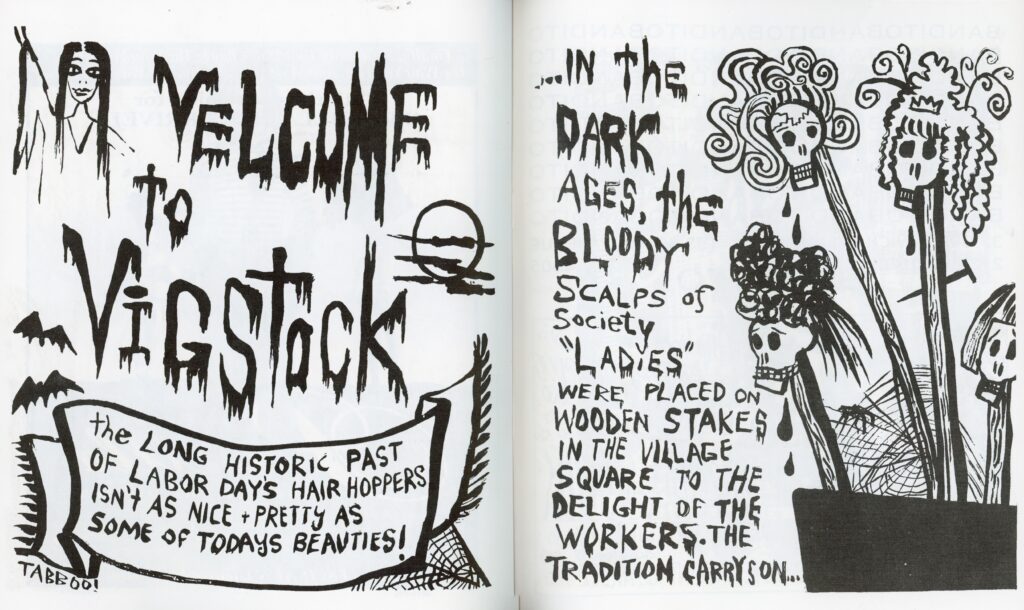 VELCOME
to
ViGStocK
the LONG HISTORIC PAST
OF LABOR DAYS HAIR HOPPERS
ISN'T AS NICE + PRETTY AS
SOME OF TODAYS BEAUTIES!
TABBOO!
...IN the
DARK
AGES, the
BLOODY
SCALPS of
Society
"LADIES"
WERE PLACED ON
WOODEN STAKES
IN THE VILLAGE
SQUARE TO THE
DELIGHT OF THE
WORKERS. THE
TRADITION CARRYS ON...